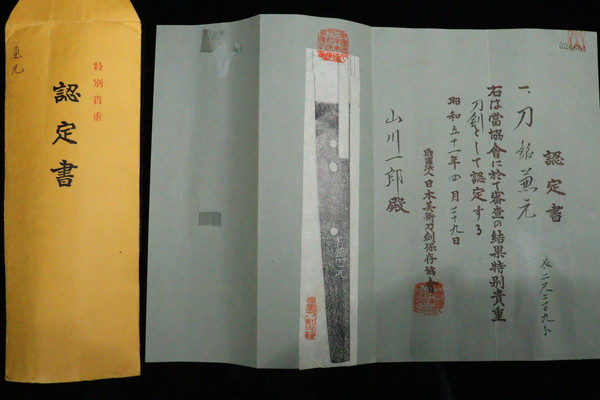 兼元
特別貴重
認定書
認定書
一、刀 銘 兼元
長二尺二寸九分
右は當協會に於て審査の結果特別貴重
刀剣として認定する
昭和五十一年四月二十九日
財團法人日本美術刀剣保存協會
山川一郎殿
兼元